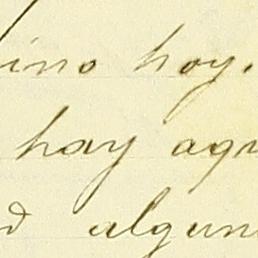 ino hoy.
hay aqu
d algun